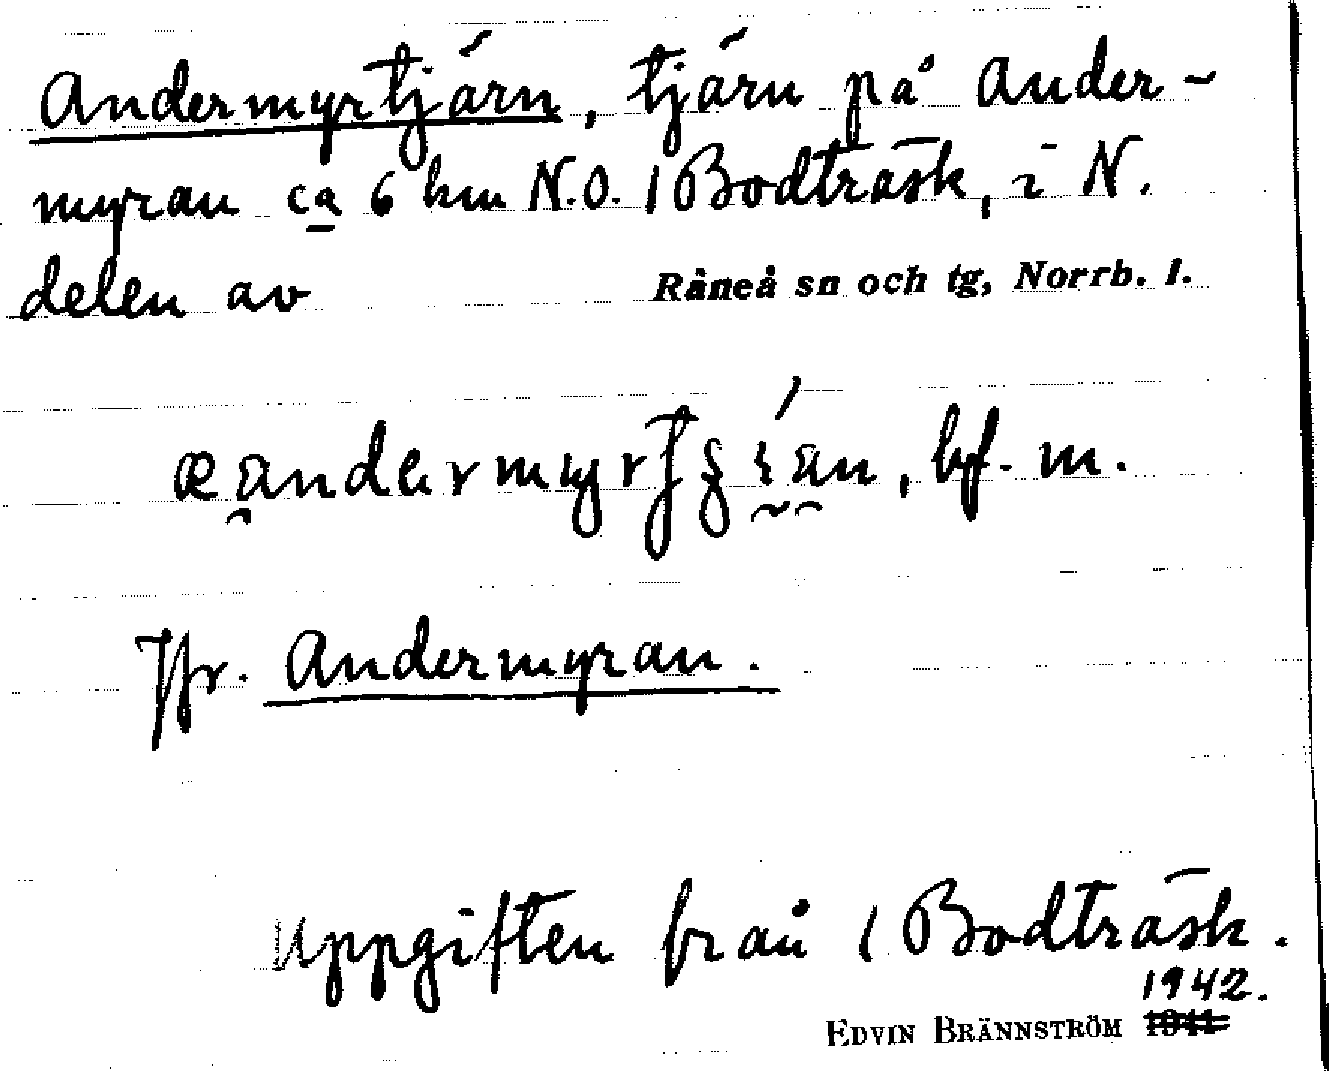 Andermyrtjärn, tjärn på Ander-
myran ca 6 km N.O. / Bodträsk, i N.
delen av Råneå sn och tg, Norrb. l.
bf. m.
Jfr. Andermyran.
Uppgiften från / Bodträsk.
1942.
EDVIN BRÄNNSTRÖM 1941